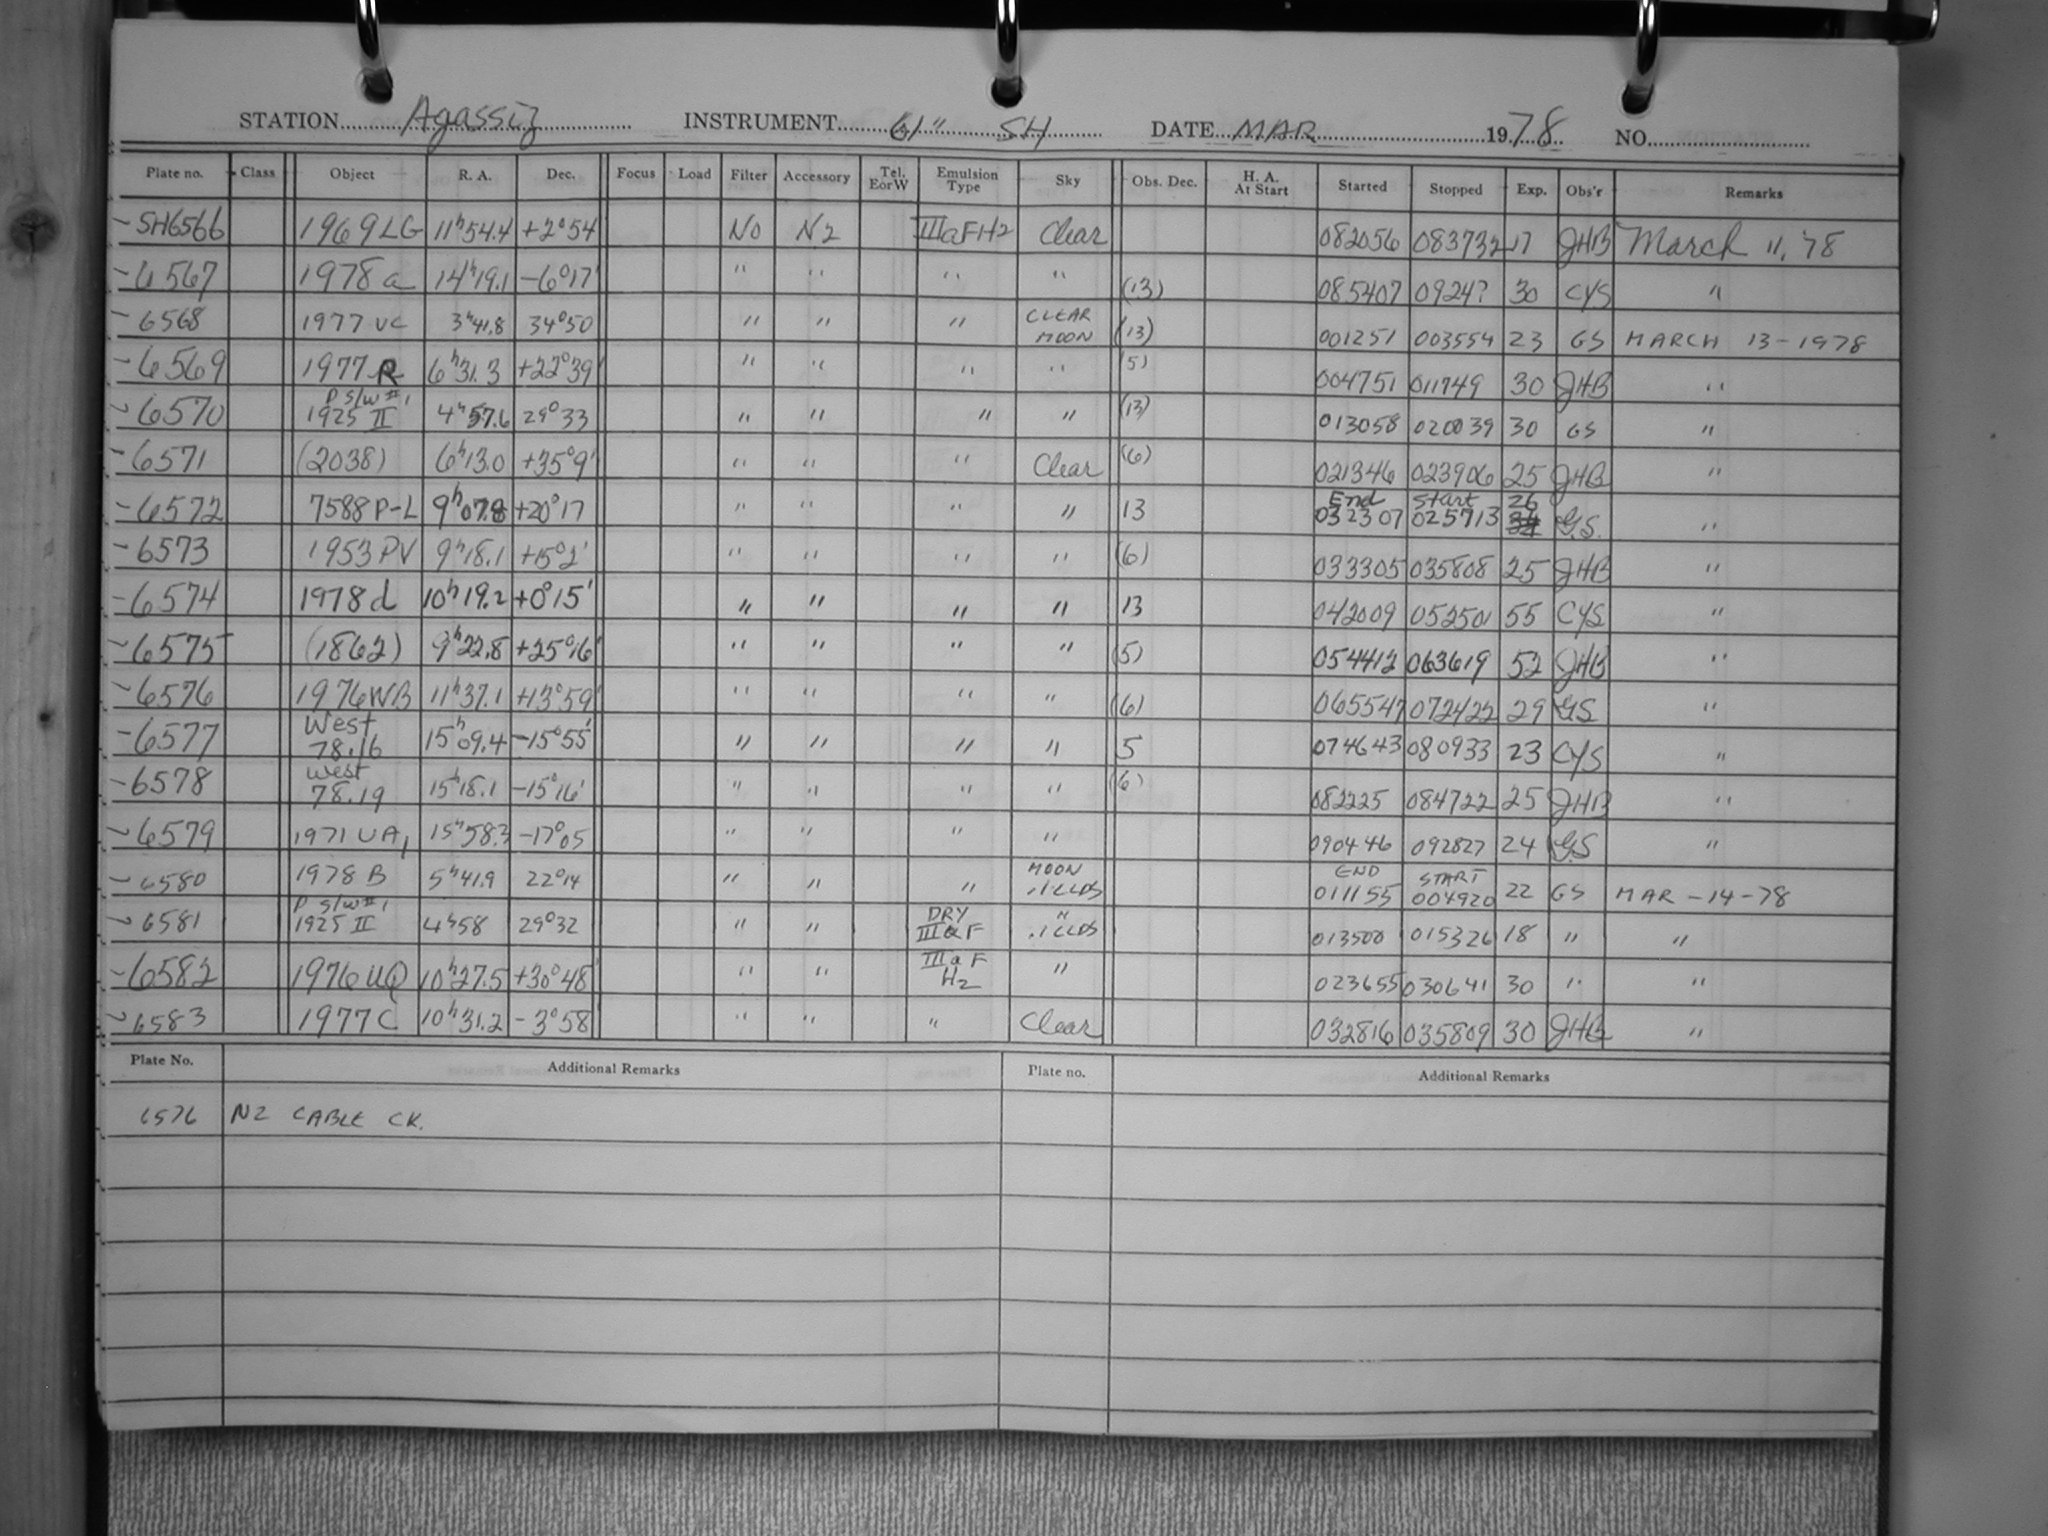 STATION Agassiz INSTRUMENT 61" SH DATE MAR 1978 NO.
Plate no. Class Object R. A. Dec. Focus Load Filter Accessory Tel. EorW Emulsion Type Sky Obs. Dec. H. A. At Start Started Stopped Exp. Obs'r Remarks
-SH6566 1969LG 11h54.4 +2°54 NO N2 IIIaFH2 Clear 082056 083732 17 JHB March 11, '78
-6567 1978a 14h19.1 -6°17' " " " " (13) 085407 0924? 30 CYS "
-6568 1977 UC 3h41.8 34°50 " " " CLEAR MOON (13) 001251 003554 23 GS MARCH 13-1978
-6569 1977R 6h31.3 +22°39' " " " " (5) 004751 011749 30 JHB "
-6570 P S/W #1 1925 II 4h57.6 29°33 " " " " (13) 013058 020039 30 GS "
-6571 (2038) 6h13.0 +35°9' " " " Clear (6) 021346 023906 25 JHB "
-6572 7588 P-L 9h07.8 +20°17 " " " " 13 End 032307 Start 025713 26 G.S. "
-6573 1953 PV 9h18.1 +15°2' " " " " (6) 033305 035808 25 JHB "
-6574 1978d 10h19.2 +0°15' " " " " 13 042009 052501 55 CYS "
-6575 (1862) 9h22.8 +25°16' " " " " (5) 054412 063619 52 JHB "
-6576 1976WB 11h37.1 +13°59' " " " " (6) 065547 072422 29 GS "
-6577 West 78.16 15h09.4 -15°55' " " " " 5 074643 080933 23 CYS "
-6578 West 78.19 15h18.1 -15°16' " " " " (6) 082225 084722 25 JHB "
-6579 1971 UA1 15h58.3 -17°05 " " " " 090446 092827 24 GS "
-6580 1978 B 5h41.9 22°14 " " " MOON .1 CLDS END 011155 START 004920 22 GS MAR-14-78
-6581 P S/W #1 1925 II 4h58 29°32 " " DRY IIIaF " .1 CLDS 013500 015326 18 " "
-6582 1976UQ 10h27.5 +30°48' " " IIIaF H2 " 023655 030641 30 " "
-6583 1977C 10h31.2 -3°58' " " " Clear 032816 035809 30 JHB "
Plate No. Additional Remarks Plate no. Additional Remarks
6576 N2 CABLE CK.